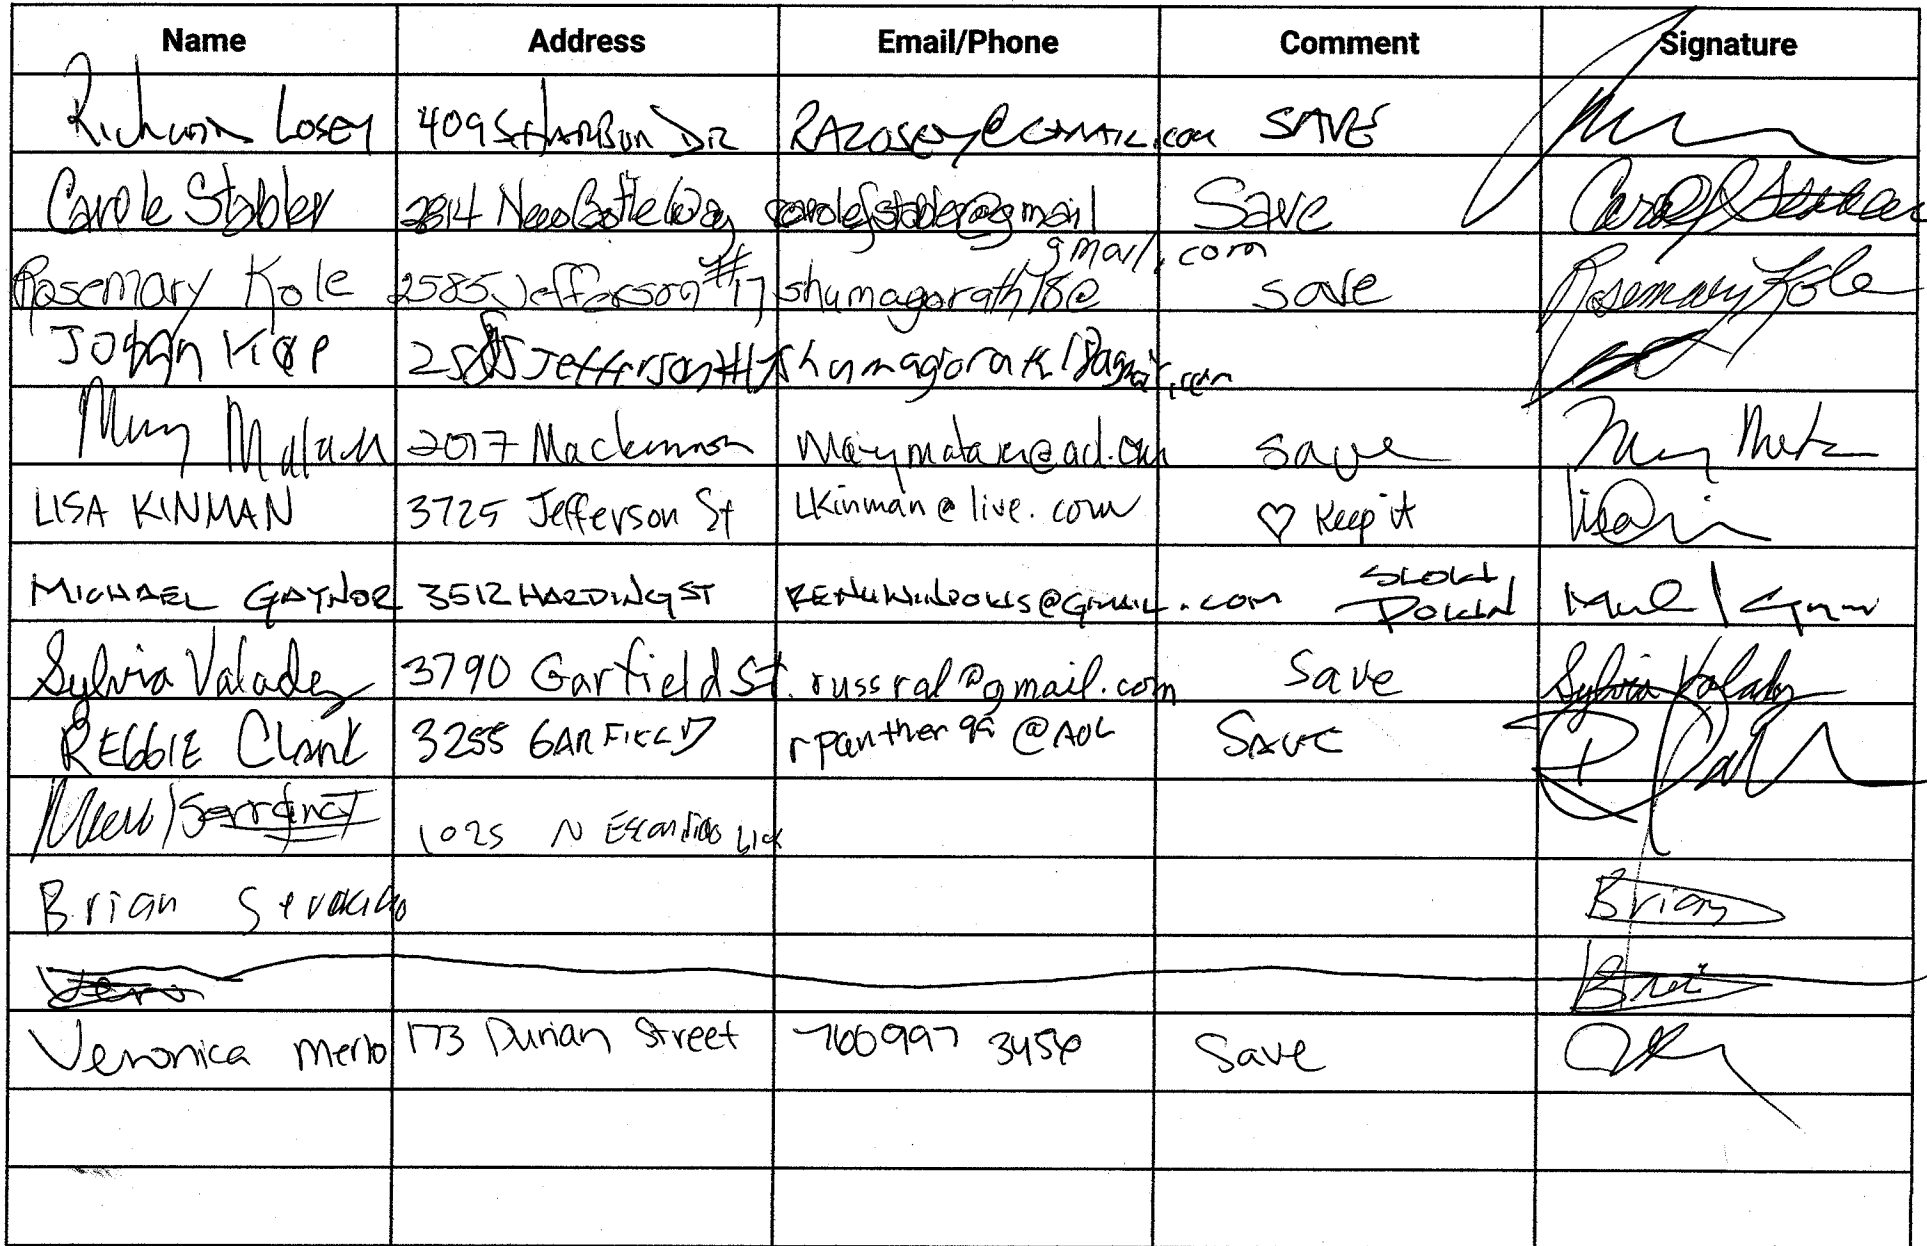 Name Address Email/Phone Comment Signature
Losey 4095 Harbor Dr RALosey@gmail.com SAVE
Carole Stabler 2814 New Battle Way carolefstabler@gmail Save
gmail.com
Rosemary Kole 2585 Jefferson #17 shumagorath78@ save Rosemary Kole
2585 Jefferson #17
Mary 2017 Mackinnon save Mary
LISA KINMAN 3725 Jefferson St Lkinman@live.com ♡ Keep it Lisa
MICHAEL GAYNOR 3512 HARDING ST RENUWINDOWS@GMAIL.com SLOW
POKIN
Sylvia Valadez 3790 Garfield St. russral@gmail.com Save Sylvia Valadez
REGGIE Clark 3255 GARFIELD rpanther99@AOL SAVE
1025 N Escondido
Brian Brian
Veronica Merlo 173 Durian Street 760 997 3456 Save